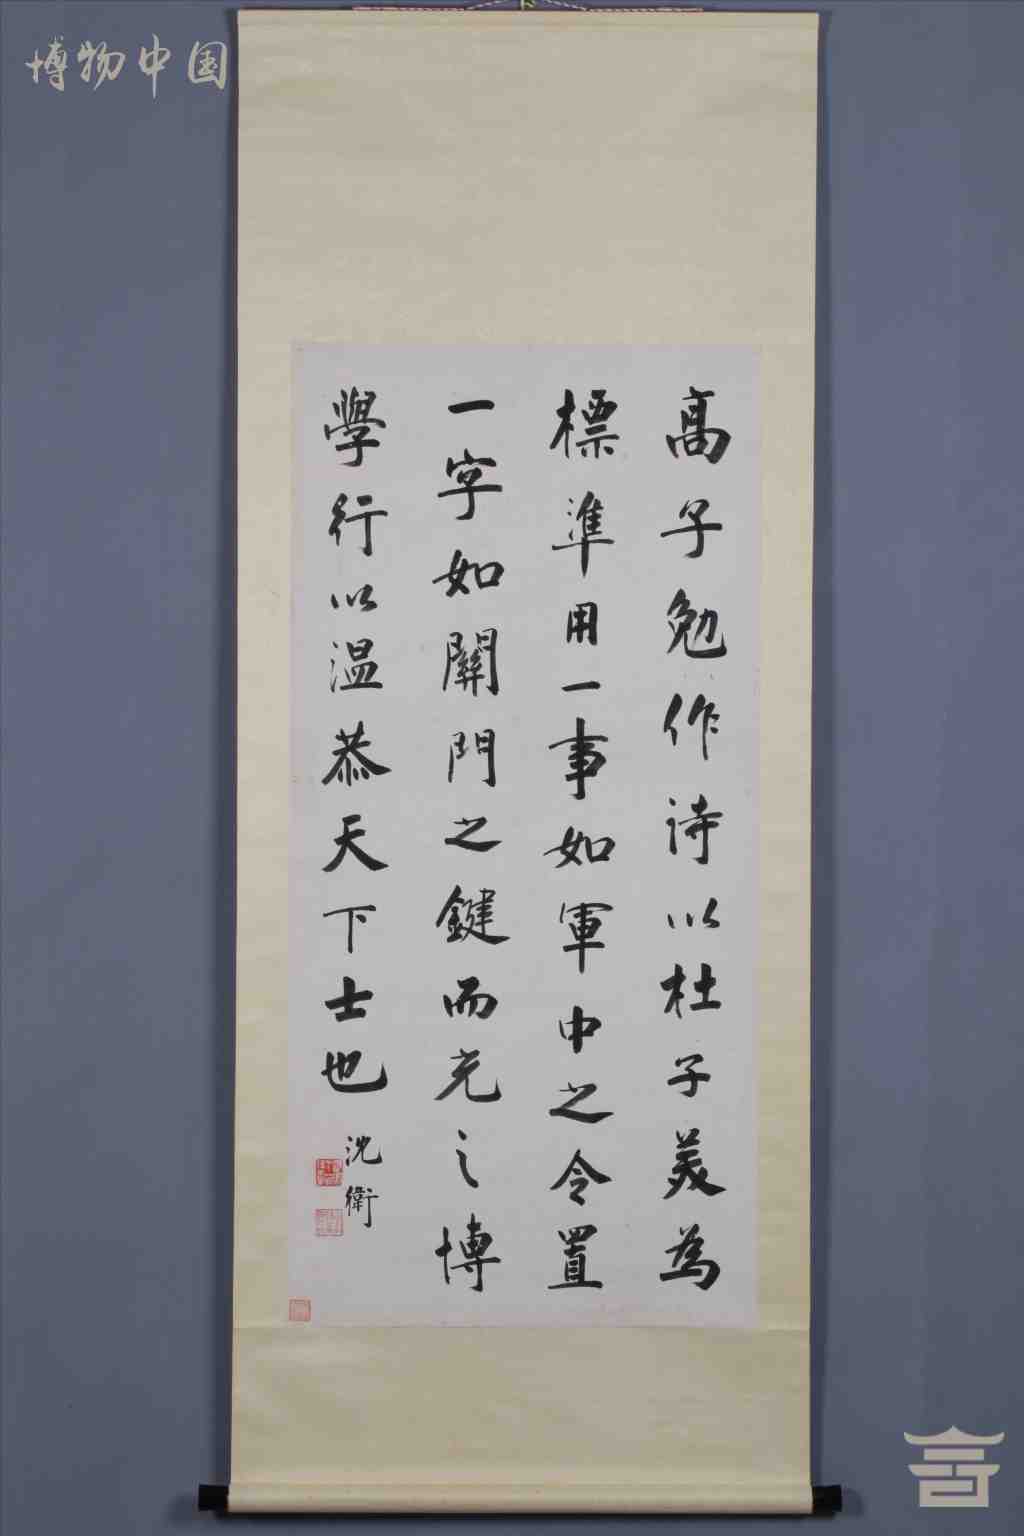 博物中国
髙子勉作诗以杜子美為
標準用一事如軍中之令置
一字如關門之鍵而充之博
學行以温恭天下士也
沈衛